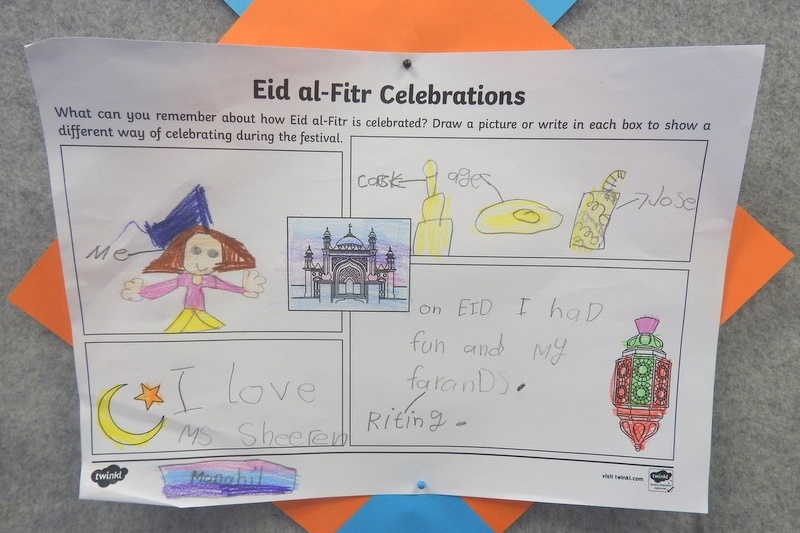 Eid al-Fitr Celebrations
What can you remember about how Eid al-Fitr is celebrated? Draw a picture or write in each box to show a
different way of celebrating during the festival.
Me
cack
ages
Nose
I love
Ms Sheeren
on EID I haD
fun and My
faranDs.
Riting.
twinkl
Manahil
visit twinkl.com
twinkl